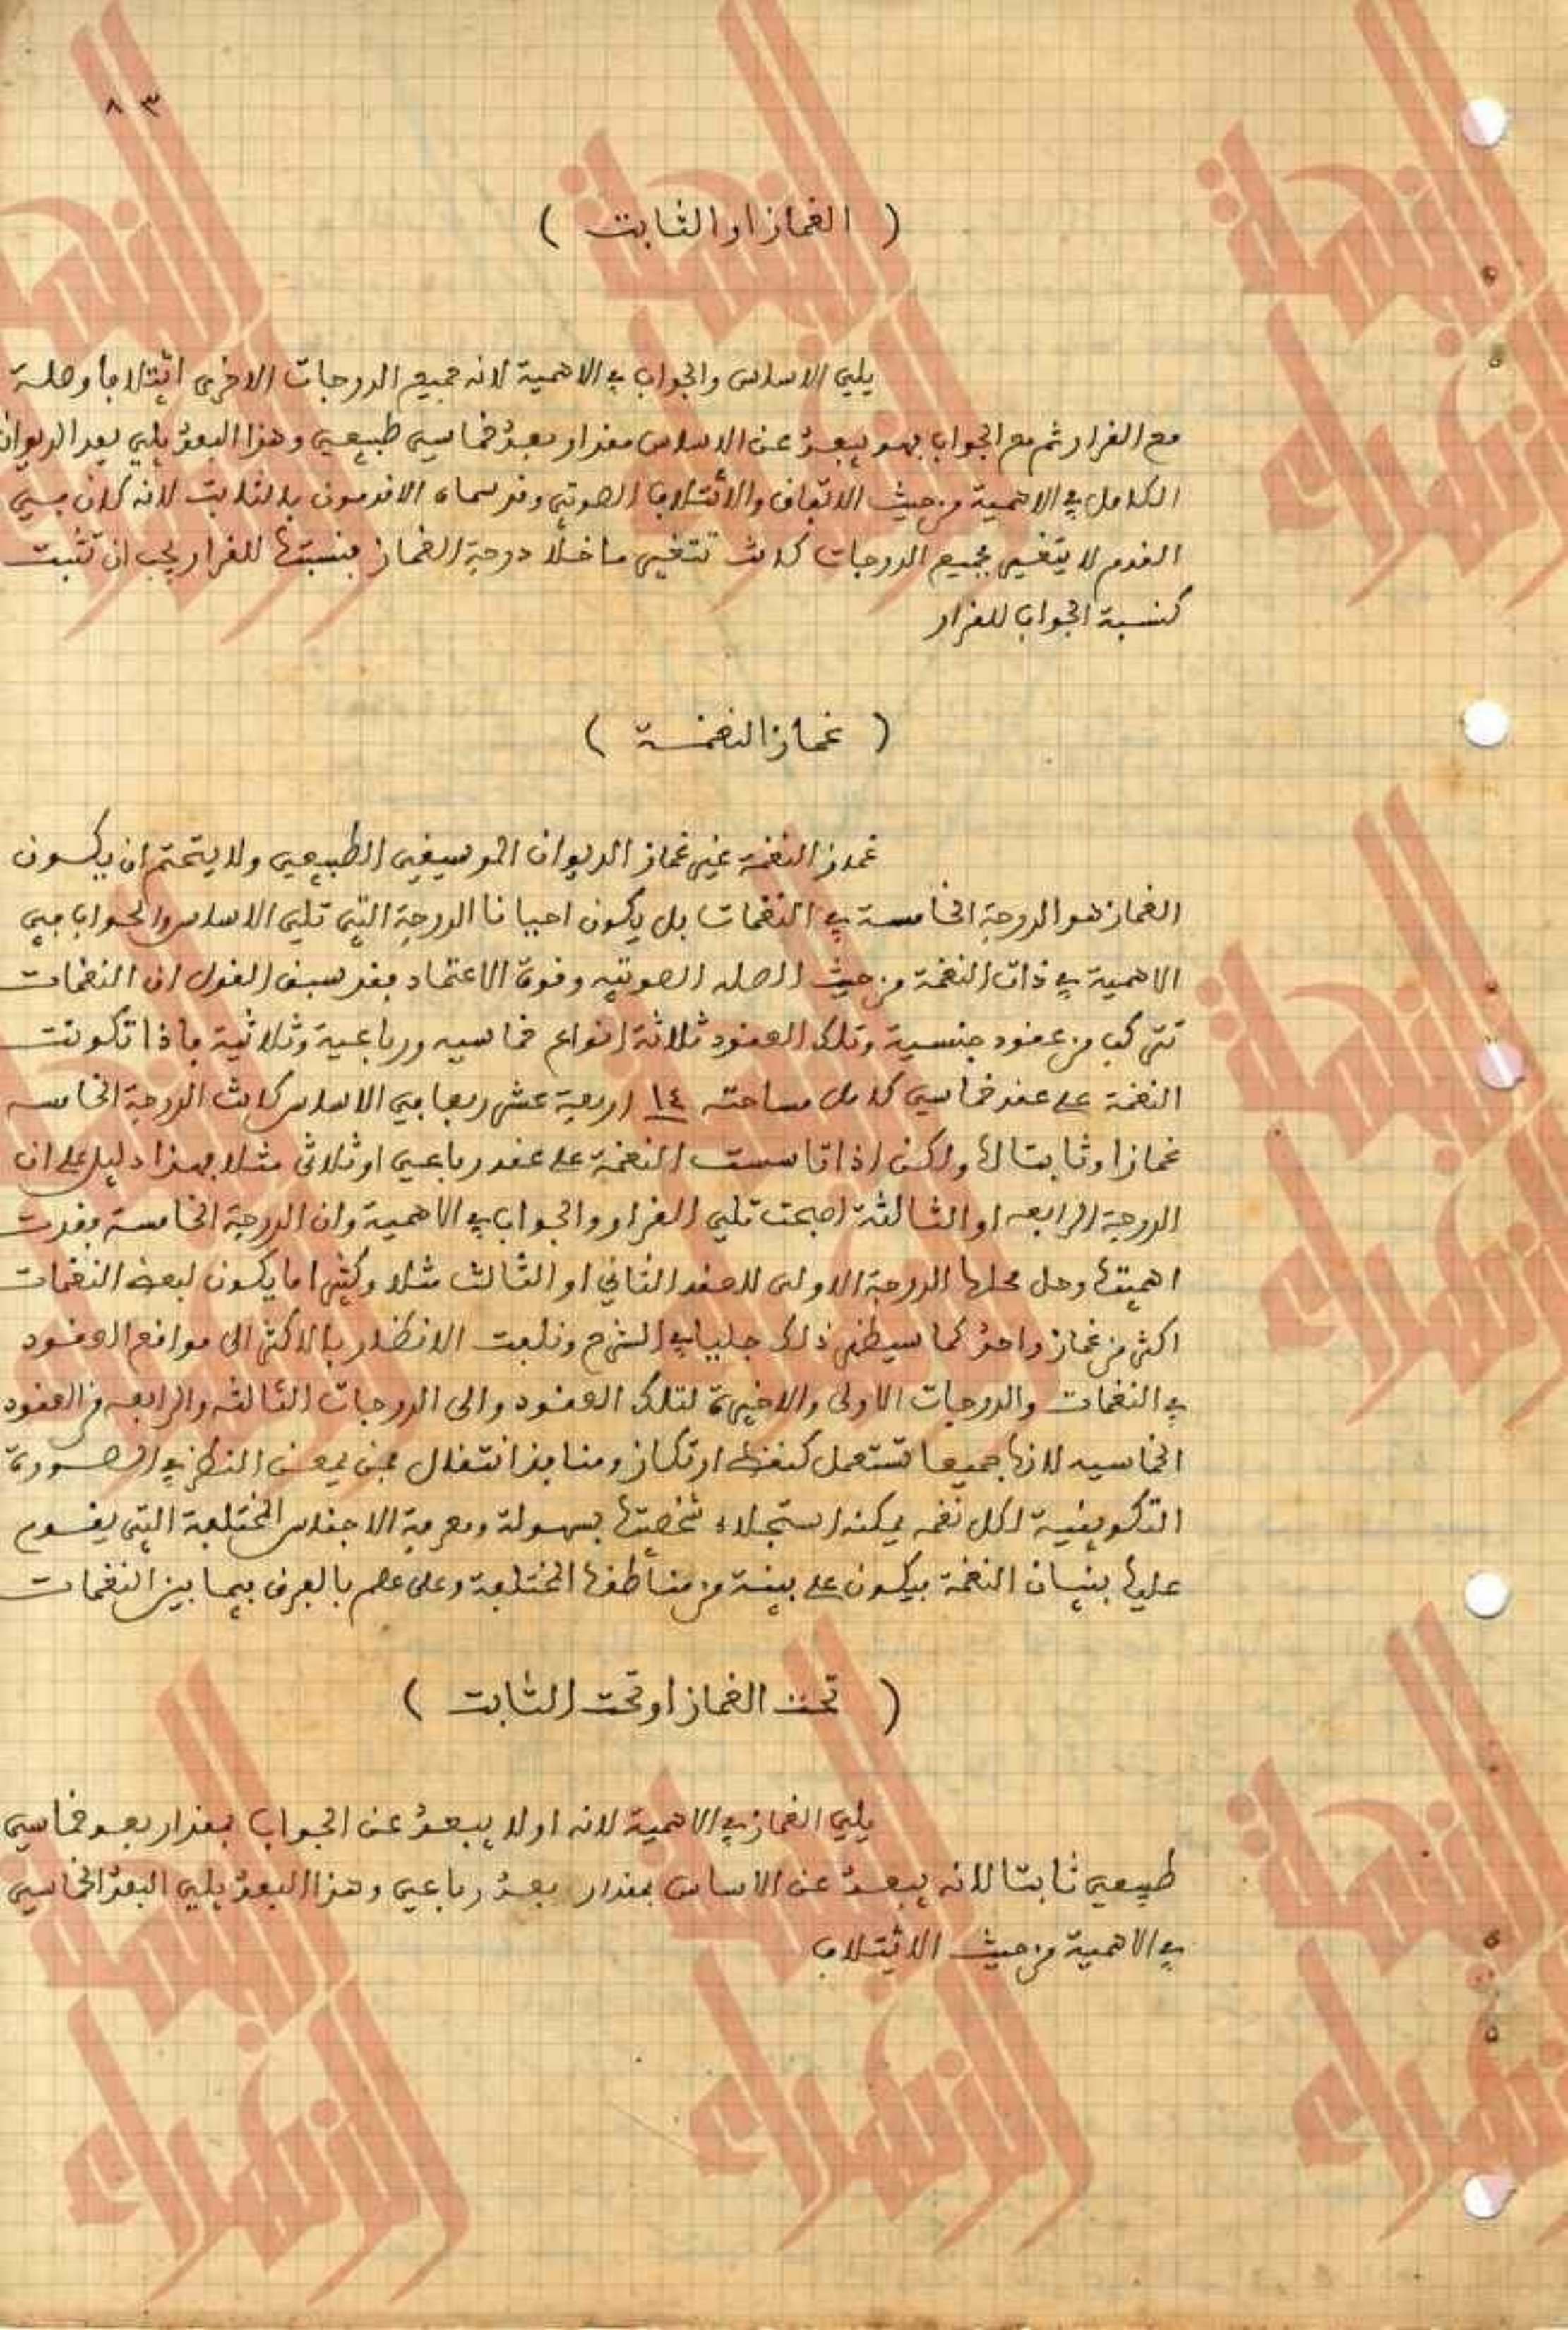 ٨٣
( الغماز او الثابت )
يلي الاساس والجواب في الاهمية لانه جميع الدرجات الاخرى ائتلافا وصلة
مع القرار ثم مع الجواب فهو يبعدُ عن الاساس مقدار بعدُ خماسي طبيعي وهذا البعدُ يلي بعد الديوان
الكامل في الاهمية من حيث الاتفاق والأئتلاف الصوتي وقد سماه الاقدمون بالثابت لانه كان في
القدم لا يتغير فجميع الدرجات كانت تتغير ما خلا درجة الغماز فنسبتها للقرار يجب ان تثبت
كنسبة الجواب للقرار
( غماز النغمة )
غماز النغمة غير غماز الديوان الموسيقي الطبيعي ولا يتحتم ان يكون
الغماز هو الدرجة الخامسة في النغمات بل يكون احيانا الدرجة التي تلي الاساس والجواب في
الاهمية في ذات النغمة من حيث الصله الصوتيه وقوة الاعتماد فقد سبق القول ان النغمات
تتركب من عقود جنسية وتلك العقود ثلاثة انواع خماسيه ورباعية وثلاثية فاذا تكونت
النغمة على عقد خماسي كامل مساحته ١٤ اربعة عشر ربعا في الاساس كانت الدرجة الخامسه
غمازا وثابتا لها ولكن اذا تاسست النغمة على عقد رباعي او ثلاثي مثلا فهذا دليل على ان
الدرجة الرابعه او الثالثة اصبحت تلي القرار والجواب في الاهمية وان الدرجة الخامسة فقدت
اهميتها وحل محلها الدرجة الاولى للعقد الثاني او الثالث مثلا وكثيرا ما يكون لبعض النغمات
اكثر من غماز واحدُ كما سيظهر ذلك جليا في الشرح ونلفت الانظار بالاكثر الى مواقع العقود
في النغمات والدرجات الاولى والاخيرة لتلك العقود والى الدرجات الثالثه والرابعه من العقود
الخماسيه لانها جميعا تستعمل كنقط ارتكاز ومنافذ انتقال فمن يمعن النظر في الصورة
التكوينية لكل نغمه يمكنه استجلاء شخصيتها بسهولة ومعرفة الاجناس المختلفة التي يقوم
عليها بنيان النغمة فيكون على بينة من مناطقها المختلفة وعلى علم بالفرق فيما بين النغمات
( تحت الغماز او تحت الثابت )
يلي الغماز في الاهمية لانه اولا يبعدُ عن الجواب بمقدار بعد خماسي
طبيعي ثابتا لانه يبعدُ عن الاساس بمقدار بعدُ رباعي وهذا البعدُ يلي البعدُ الخماسي
في الاهمية من حيث الائتلاف